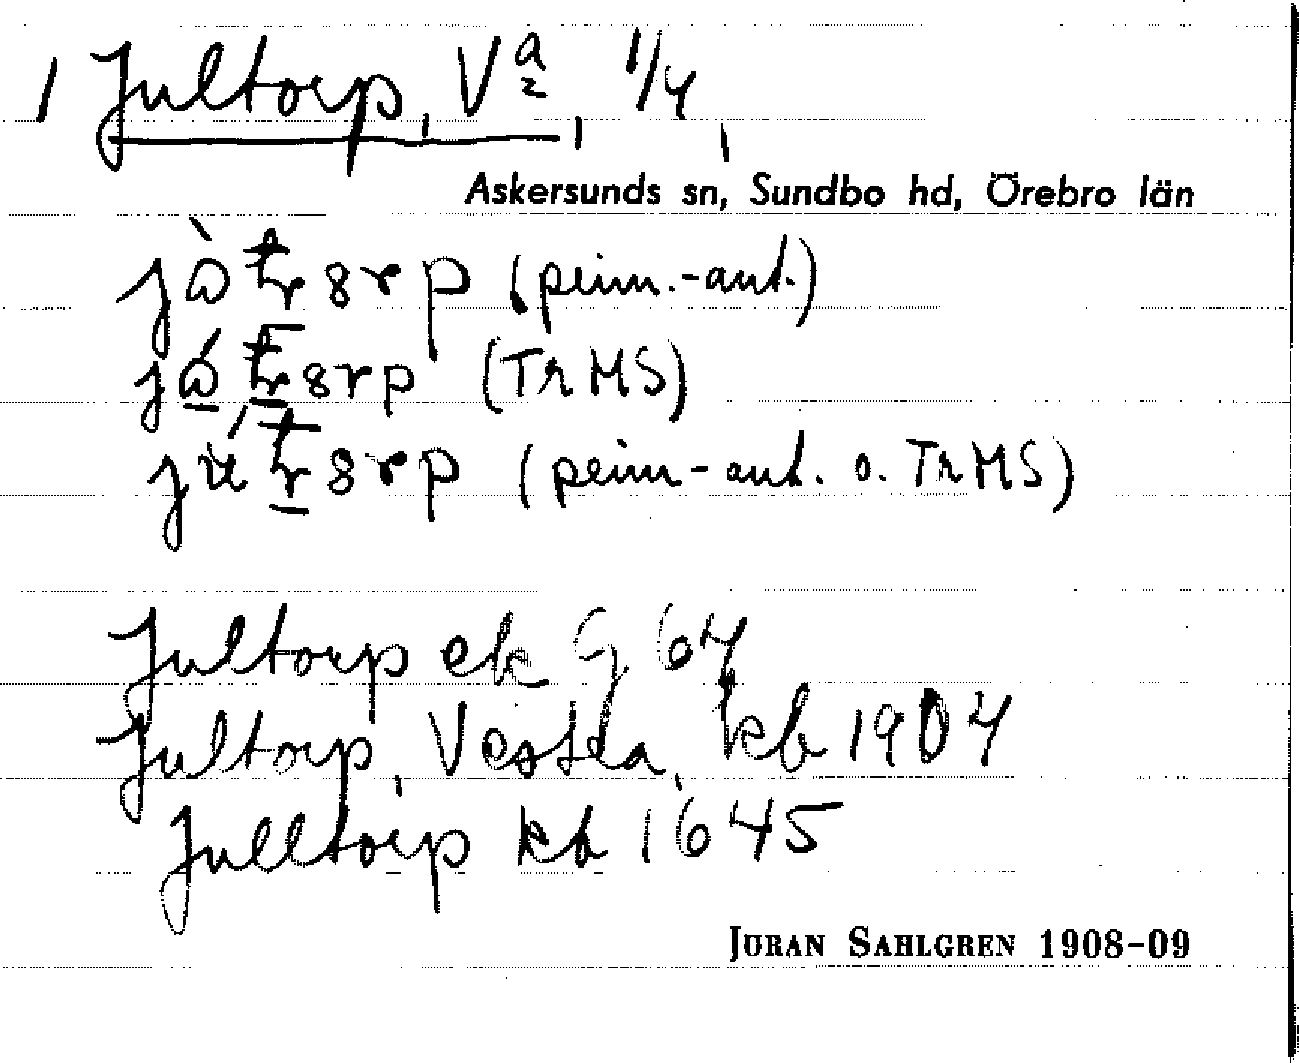 1 Jultorp, Vª, 1/4,
Askersunds sn, Sundbo hd, Örebro län
(prim.-ant.)
(TrMS)
(prim-ant. o. TrMS)
Jultorp ek G 64
Jultorp, Vestra, kb 1904
Julltorp kb 1645
JÖRAN SAHLGREN 1908-09